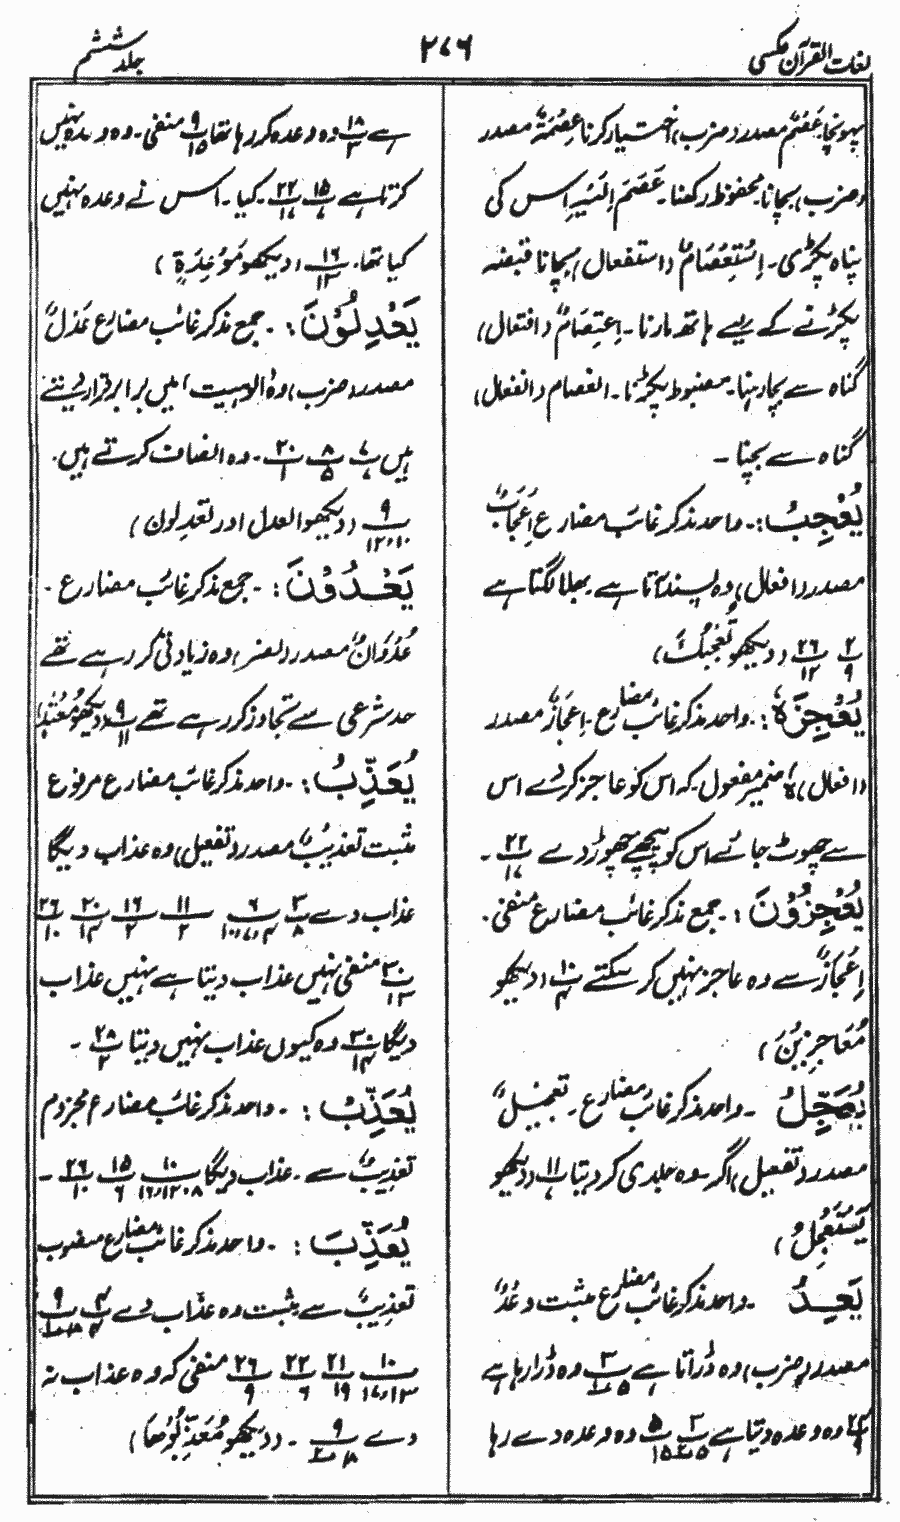 لغات القرآن مکسی
۲۷۶
جلد ششم
پہونچا۔ عَصْمٌ مصدر (ضرب) اختیار کرنا عِصْمَۃٌ مصدر
(ضرب) بچانا۔ محفوظ رکھنا۔ عَصَمَ اِلَیْہِ اس کی
پناہ پکڑی۔ اِسْتِعْصَامٌ (استفعال) بچانا قبضہ
پکڑنے کے لیے ہاتھ مارنا۔ اِعْتِصَامٌ (افتعال)
گناہ سے بچا رہنا۔ مضبوط پکڑنا۔ انعصام (انفعال)
گناہ سے بچنا ۔
یُعْجِبُ :۔ واحد مذکر غائب مضارع اِعْجَابٌ
مصدر (افعال) وہ پسند آتا ہے۔ بھلا لگتا ہے
۲/۹ ۲۶/۱۲ (دیکھو تُعْجِبُکَ)
یُعْجِزَہٗ :۔ واحد مذکر غائب مضارع۔ اِعْجَازٌ مصدر
(افعال) ہٗ ضمیر مفعول۔ کہ اس کو عاجز کر دے اس
سے چھوٹ جائے اس کو پیچھے چھوڑ دے ۲۲/۱۷ ۔
یُعْجِزُوْنَ :۔ جمع مذکر غائب مضارع منفی۔
اِعْجَازٌ سے وہ عاجز نہیں کر سکتے ۱۰/۴ (دیکھو
مُعَاجِزِیْنَ )
یُعَجِّلُ ۔ واحد مذکر غائب مضارع ۔ تعجیلٌ
مصدر (تفعیل) اگر۔ وہ جلدی کر دیتا ۱۱/۷ (دیکھو
یَسْتَعْجِلُ )
یَعِدُ ۔ واحد مذکر غائب مضارع مثبت وَعْدٌ
مصدر (ضرب) وہ ڈراتا ہے ۳/۵ وہ ڈرا رہا ہے
وہ وعدہ دیتا ہے ۳/۵ ۵/۱۵ وہ وعدہ دے رہا
ہے ۱۸/۳ وہ وعدہ کر رہا تھا ۹/۱۵ منفی۔ وہ وعدہ نہیں
کرتا ہے ۱۵/۷ ۲۲/۱۷ کیا ۔ اس نے وعدہ نہیں
کیا تھا۔ ۱۶/۱۳ (دیکھو مَوْعِدَۃٍ )
یَعْدِلُوْنَ :۔ جمع مذکر غائب مضارع عَدْلٌ
مصدر (ضرب) وہ الوہیت میں برابر قرار دیتے
ہیں ۷/۷ ۸/۵ ۲۰/۱ ۔ وہ انصاف کرتے ہیں۔
۹/۱۲،۱۰ (دیکھو العدل اور تعدلون )
یَعْدُوْنَ :۔ جمع مذکر غائب مضارع ۔
عُدْوَانٌ مصدر (نصر) وہ زیادتی کر رہے تھے
حد شرعی سے تجاوز کر رہے تھے ۹/۱۱ (دیکھو مُعْتَدٍ)
یُعَذِّبُ :۔ واحد مذکر غائب مضارع مرفوع
مثبت تعذیبٌ مصدر (تفعیل) وہ عذاب دیگا
عذاب دے ۳/۸ ۶/۱۰،۷،۴ ۱۱/۲ ۱۶/۲ ۲۰/۱۴ ۲۶/۱۰
۳۰/۱۳ منفی نہیں عذاب دیتا ہے نہیں عذاب
دیگا ۳۰/۱۴ وہ کیوں عذاب نہیں دیتا ۲۸/۲ ۔
یُعَذِّبْ :۔ واحد مذکر غائب مضارع مجزوم
تعذیبٌ سے ۔ عذاب دیگا ۱۰/۱۶،۱۲،۸ ۱۵/۶ ۲۶/۱۰ ۔
یُعَذِّبَ :۔ واحد مذکر غائب مضارع منصوب
تعذیبٌ سے مثبت وہ عذاب دے ۴/۴
۱۰/۱۷،۱۳ ۲۱/۱۹ ۲۲/۶ ۲۶/۹ منفی کہ وہ عذاب نہ
دے ۹/۱۸ ۔ (دیکھو مُعَذِّبُوْھَا )